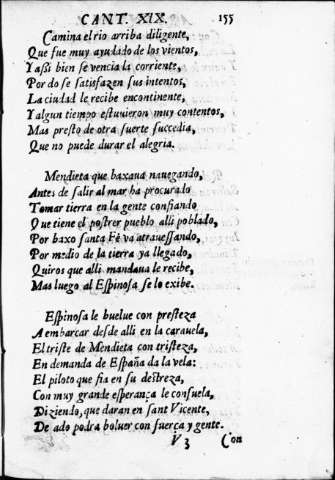 CANT. XIX. 155
Camina el rio arriba diligente,
Que fue muy ayudado de los vientos,
Y assi bien se vencia la corriente,
Por do se satisfazen sus intentos,
La ciudad le recibe encontinente,
Y algun tiempo estuuieron muy contentos,
Mas presto de otra suerte succedia,
Que no puede durar el alegria.
Mendieta que baxaua nauegando,
Antes de salir al mar ha procurado
Tomar tierra en la gente confiando
Que tiene el postrer pueblo alli poblado,
Por baxo santa Fè va atrauessando,
Por medio de la tierra ya llegado,
Quiros que alli mandaua le recibe,
Mas luego al Espinosa se lo exibe.
Espinosa le buelue con presteza
A embarcar desde alli en la carauela,
El triste de Mendieta con tristeza,
En demanda de España da la vela:
El piloto que fia en su destreza,
Con muy grande esperança le consuela,
Diziendo, que daran en sant Vicente,
De ado podra boluer con fuerça y gente.
V 3 Con